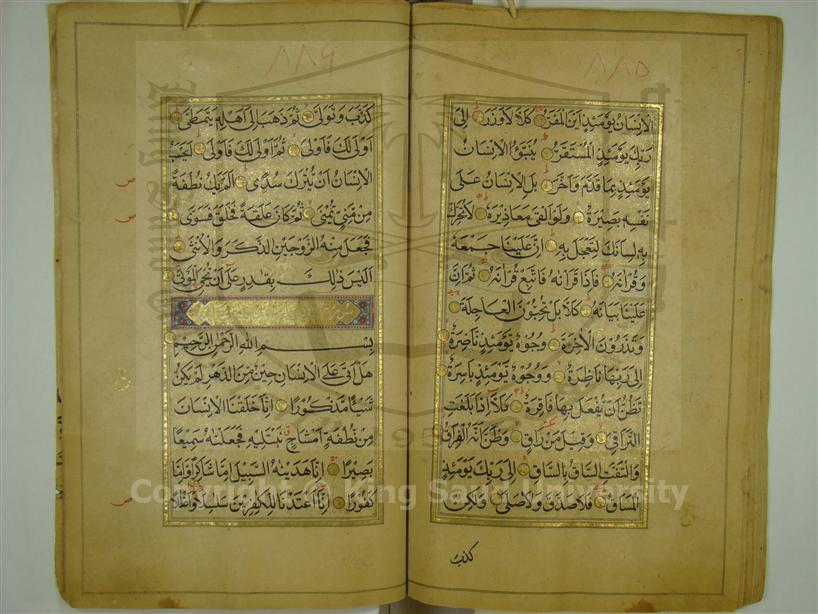 ٨٨٥
الانسان يومئذ اين المفر كلا لا وزر الى
ربك يومئذ المستقر ينبؤ الانسان
يومئذ بما قدم واخر بل الانسان على
نفسه بصيرة ولو القى معاذيره لا تحرك
به لسانك لتعجل به ان علينا جمعه
وقرانه فاذا قراناه فاتبع قرانه ثم ان
علينا بيانه كلا بل تحبون العاجلة
وتذرون الاخرة وجوه يومئذ ناضرة
الى ربها ناظرة ووجوه يومئذ باسرة
تظن ان يفعل بها فاقرة كلا اذا بلغت
التراقي وقيل من راق وظن انه الفراق
والتفت الساق بالساق الى ربك يومئذ
المساق فلا صدق ولا صلى ولكن
كذب
٨٨٦
كذب وتولى ثم ذهب الى اهله يتمطى
اولى لك فاولى ثم اولى لك فاولى ايحسب
الانسان ان يترك سدى الم يك نطفة
من مني يمنى ثم كان علقة فخلق فسوى
فجعل منه الزوجين الذكر والانثى
اليس ذلك بقادر على ان يحيى الموتى
بسم الله الرحمن الرحيم
هل اتى على الانسان حين من الدهر لم يكن
شيئا مذكورا انا خلقنا الانسان
من نطفة امشاج نبتليه فجعلنه سميعا
بصيرا انا هدينه السبيل اما شاكرا واما
كفورا انا اعتدنا للكفرين سلسلا واغلالا
Copyright © King Saud University